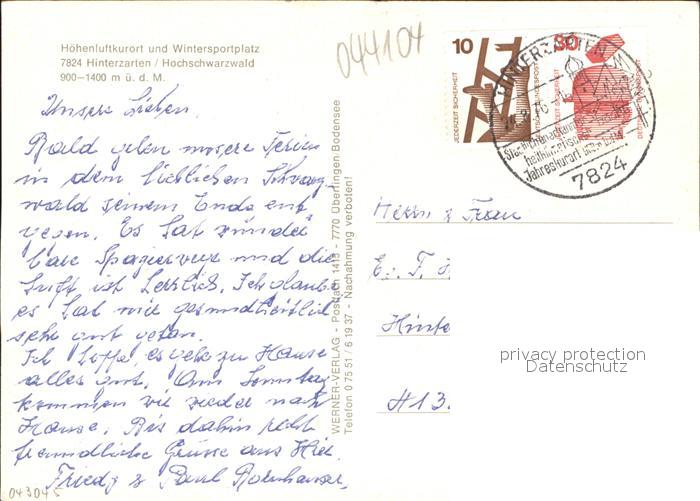 Höhenluftkurort und Wintersportplatz
7824 Hinterzarten / Hochschwarzwald
900-1400 m ü. d. M.
044104
Unsere Lieben.
Bald gehen unsere Ferien
in dem lieblichen Schwarz
wald seinem Ende ent
gegen. Es hat wunder
bare Spazierwege und die
Luft ist herrlich. Ich glaube
es hat mir gesundheitlich
sehr gut getan.
Ich hoffe, es geht zu Hause
alles gut. Am Sonntag
kommen wir wieder nach
Hause. Bis dahin recht
freundliche Grüsse aus Hier.
Friedy & Paul
043045
WERNER-VERLAG - Postfach 1413 - 7770 Überlingen/Bodensee
Telefon 0 75 51 / 6 19 37 - Nachahmung verboten!
10
JEDERZEIT SICHERHEIT
DEUTSCHE BUNDESPOST
30
JEDERZEIT SICHERHEIT
DEUTSCHE BUNDESPOST
HINTERZARTEN
heilklimatischer
Jahreskurort
7824
Herrn & Frau
E. T.
Hinte
413.
privacy protection
Datenschutz